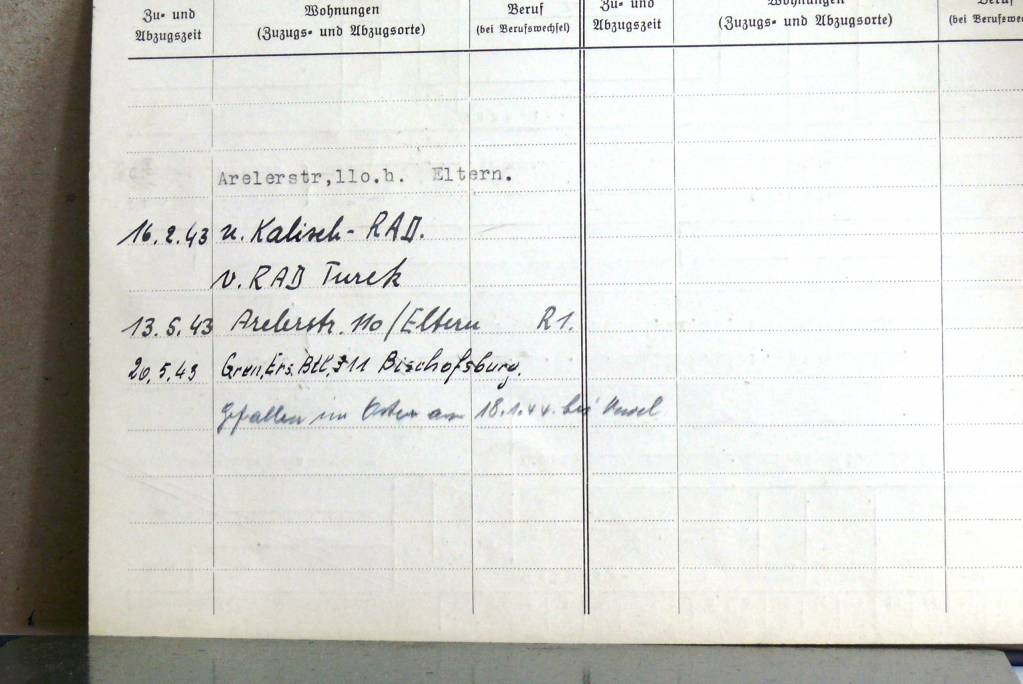 Zu- und Abzugszeit
Wohnungen (Zuzugs- und Abzugsorte)
Beruf (bei Berufswechsel)
Zu- und Abzugszeit
Wohnungen (Zuzugs- und Abzugsorte)
Beruf (bei Berufswec
Arelerstr,llo.h. Eltern.
16.2.43 n. Kalisch - RAD.
v. RAD Turek
13.5.43 Arelerstr. 110/Eltern R1.
20.5.43 Gren. Ers. Btl. 311 Bischofsburg.
Gefallen im Osten am 18.1.44. bei